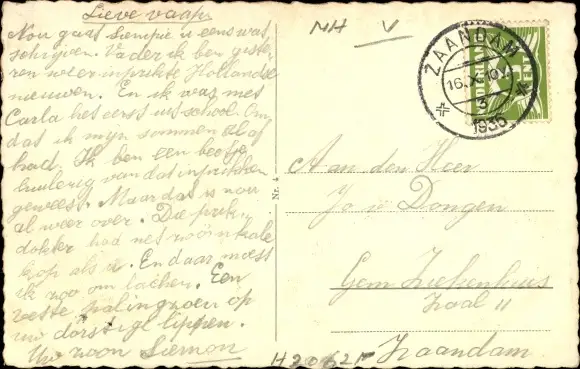 Lieve vaap
Nou gaat Siempie u eens wat
schrijven. Vader ik ben giste-
ren weer
nieuwen. En ik was met
Carla het eerst uit school. Om
dat ik mijn sommen al af
had. Ik ben een beetje
huilerig van dat inprikken
geweest. Maar dat is nou
al weer over. Die prik-
dokter had net zoo'n kale
kop als u. En daar moest
ik zoo om lachen. Een
vette palingzoen op
uw dorstige lippen.
Uw zoon Siemon
MH V
ZAANDAM
16.X.10V
3
1935
Nr. 4
Aan den Heer
Jo v Dongen
Gem Ziekenhuis
Zaal 11
Zaandam
H20621